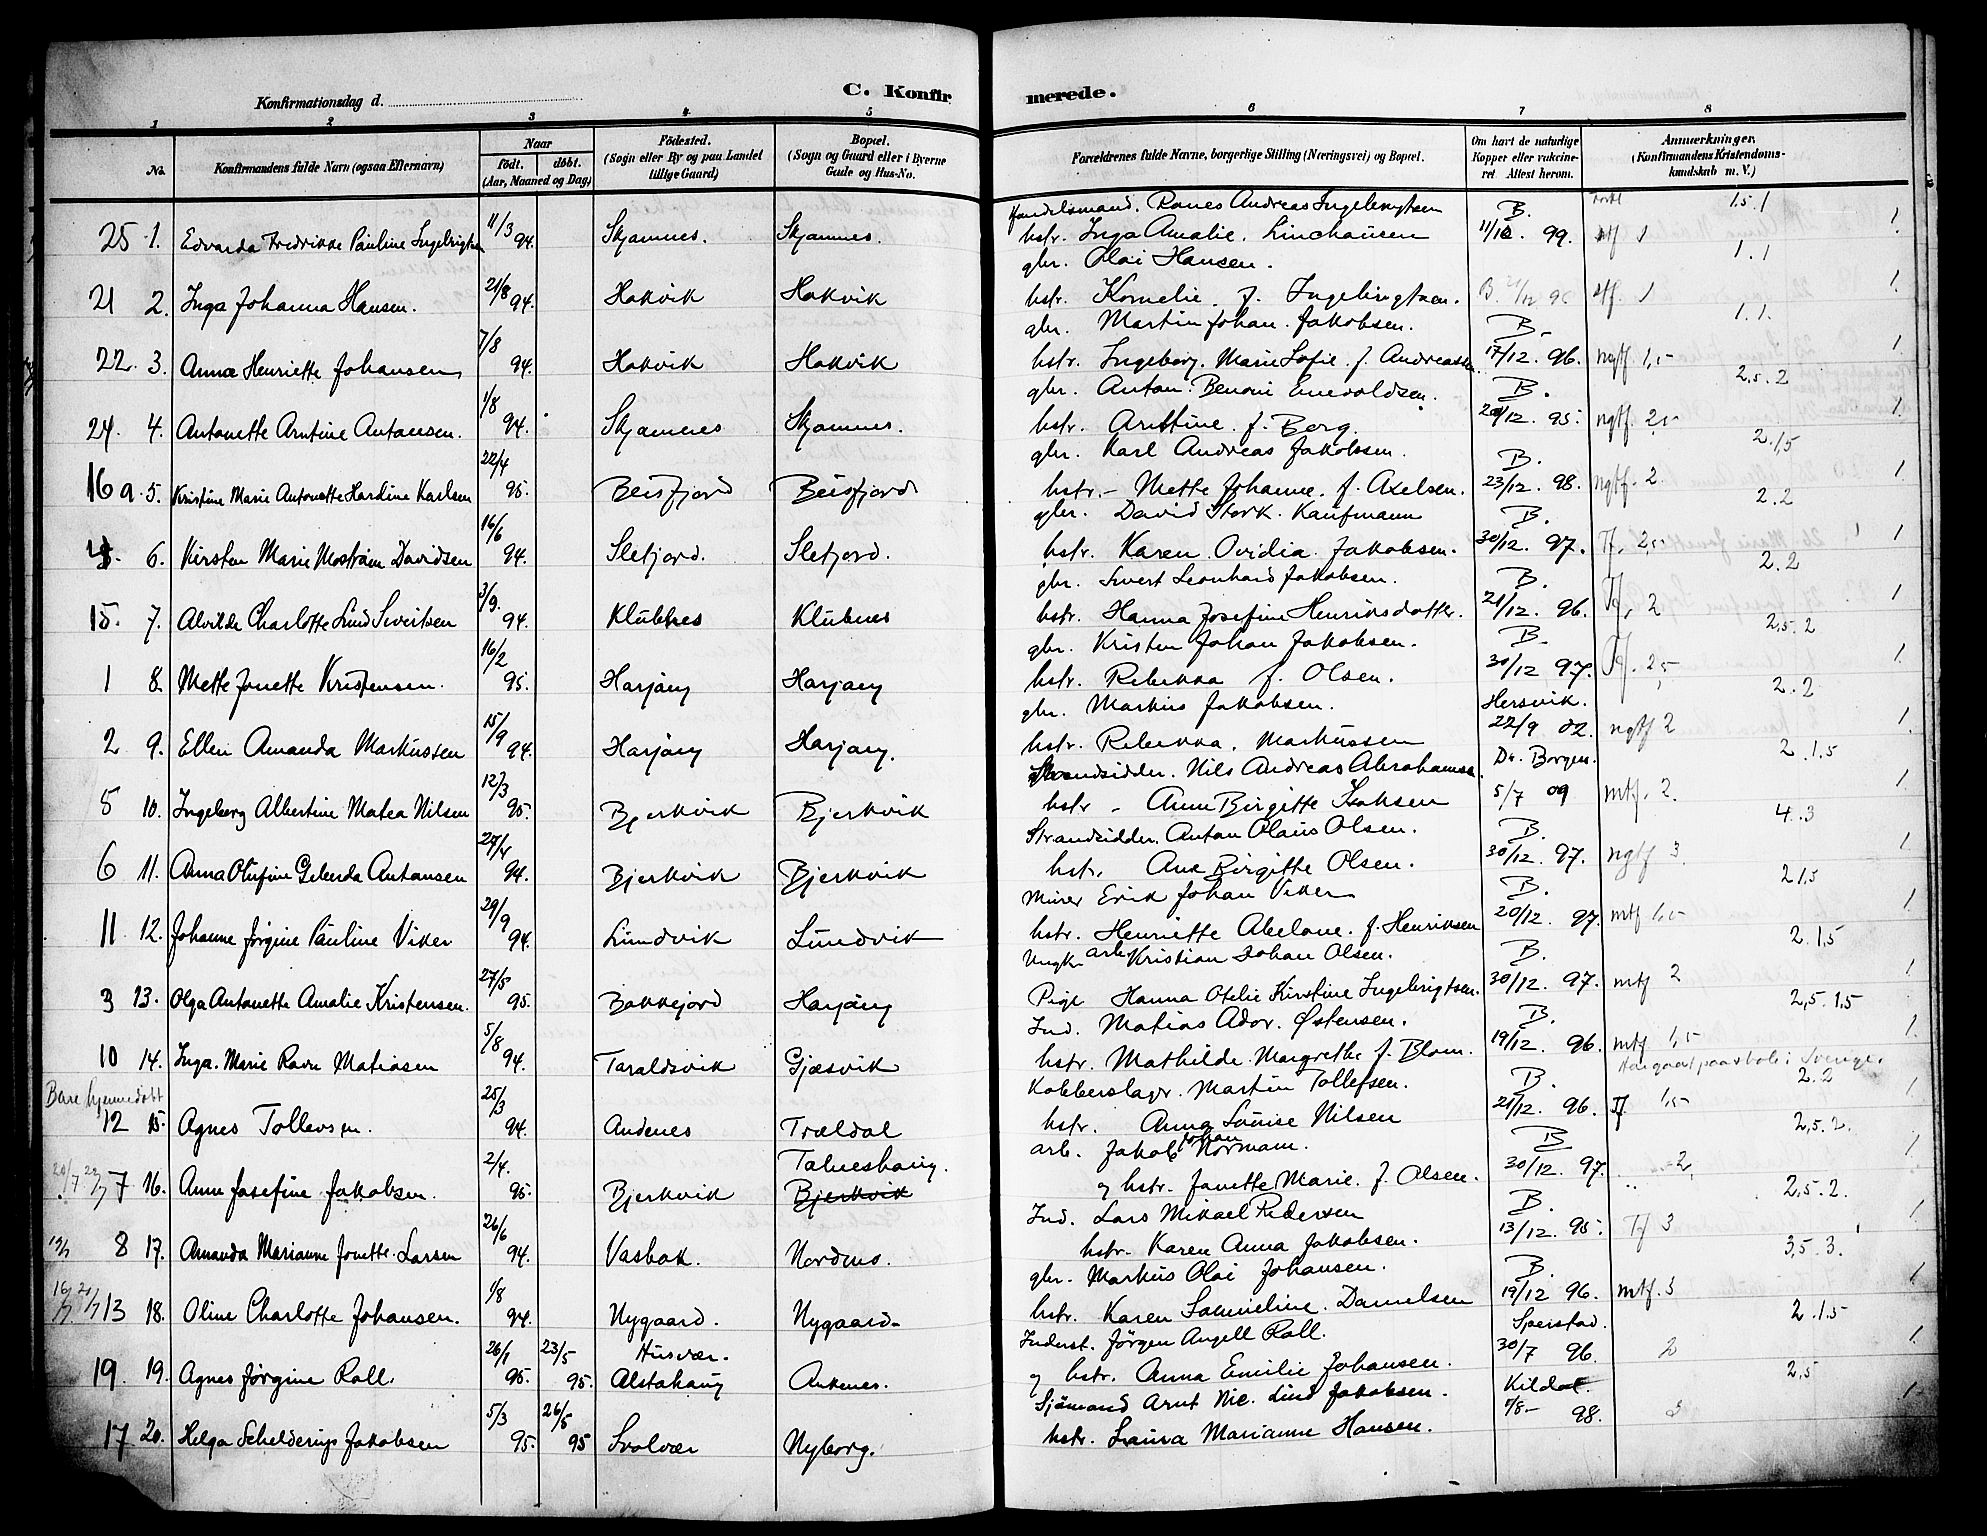 Konfirmationsdag d.
C. Konfirmerede.
1 2 3 4 5 6 7 8
No. Konfirmandens fulde Navn (ogsaa Efternavn) Naar födt. döbt. (Aar, Maaned og Dag) Födested. (Sogn eller By og paa Landet tillige Gaard) Bopæl. (Sogn og Gaard eller i Byerne Gade og Hus-No. Forældrenes fulde Navne, borgerlige Stilling (Næringsvei) og Bopæl. Om havt de naturlige Kopper eller vakcineret. Attest herom. Anmerkninger. (Konfirmandens Kristendomskundskab m. V.)
Handelsmand. Ranes Andreas Ingebrigtsen B. 1.5.1
25 1. Edvarda Fredrikke Pauline Ingebrigtsen 11/3 94. Skjomnes. Skjomnes. hstr. Inga Amalie. Linchausen 11/12. 99. 1 1.
gbr. Olai Hansen. 1.1
21 2. Inga Johanna Hansen. 21/8 94. Hakvik Hakvik hstr. Kornelie. f. Ingebrigtsen. B. 1 1.
gbr. Martin Johan. Jakobsen. B. 1.1.
22. 3. Anna Henriette Johansen 7/8 94. Hakvik Hakvik hstr. Ingeborg. Marie Sofie. f. Andreassen 17/12. 96. ngtf. 1,5 1
gbr. Anton. Benoni Enevoldsen. B. 2,5.2
24. 4. Antonette Arntine Antonsen. 1/8 94. Skjomnes Skjomnes. hstr. Arntine. f. Berg. 20/12. 95. ngtf. 2,5 1.
gbr. Karl Andreas Jakobsen. B. 2.1,5
16 a. 5. Kristine Marie Antonette Hardine Karlsen 22/4 95. Beisfjord Beisfjord hstr. Mette Johanne. f. Axelsen. 23/12. 98. ngtf. 2 1
gbr. David Stork. Kaufmann B. 2.2
6. Kirsten Marie Mostrøm Davidsen 16/6 94. Sletjord. Sletjord. hstr. Karen Ovidia. Jakobsen. 30/12. 97. Tf. 2,5 1
gbr. Sivert Leonhard Jakobsen. B. 2.2
15. 7. Alvilde Charlotte Lind Sivertsen 3/9. 94. Klubnes Klubnes hstr. Hanna Josefine Henriksdatter. 21/12. 96. Tf. 2 1
gbr. Kristen Johan Jakobsen. B. 2,5.2
1 8. Mette Jonette Kristensen. 16/2 95. Harjang Harjang hstr. Rebekka f. Olsen. 30/12 97. Tf. 2,5 1.
gbr. Markus Jakobsen. Hersvik. 2.2
2 9. Ellen Amanda Markussen 15/9 94. Harjang Harjang. hstr. Rebekka. Markussen 22/9 02. ngtf 2 1.
Strandsidder. Nils Andreas Abrahamsen. Dr. Borgen. 2.1,5
5 10. Ingeborg Albertine Matea Nilsen 12/3 95. Bjerkvik Bjerkvik hstr. Anne Birgitte Isaksen 5/7 09 mtf. 2. 1
Strandsidder. Anton Olaus Olsen. B. 4.3
6 11. Anna Olufine Antonsen 27/4 94. Bjerkvik Bjerkvik hstr. Ane Birgitte Olsen. 30/12. 97. ngtf 3. 1
Minør Erik Johan Viker B. 2 1,5
11 12. Johanne Jørgine Pauline Viker 29/9 94. Lundvik Lundvik hstr. Henriette Abelone. f. Henriksen 20/12. 97. mtf 1,5 1.
Ungk. arb. Kristian Johan Olsen. B. 2.1,5
3 13. Olga Antonette Amalie Kristensen. 27/5 95. Bakkejord Harjang Pige Hanna Otelie Kirstine Ingebrigtsen. 30/12. 97. mtf 2 1
Ind. Matias Ador. Østensen. B. 2,5.1,5
10 14. Inga. Marie Ravn Matiasen 5/8 94. Taraldsvik Gjæsvik hstr. Mathilde. Margrethe f. Blom. 19/12. 96. mtf 1,5 1.
Har gaaet paa skole i Sverige.
Bare hjemmedøbt Kobberslagr. Martin Tollefsen. B. 2.2
12 15. Agnes Tollevsen. 25/3 94. Andenes Trældal hstr. Anna Louise Nilsen 21/12. 96. Tf. 1,5 1
arb. Jakob Johan Normann. B 2,5.2.
Talneshaug.
7 16. Anne Josefine Jakobsen. 2/4. 95. Bjerkvik Bjerkvik og hstr. Janette Marie. f. Olsen. 30/12. 97. 2 1
Ind. Lars Mikael Pedersen B. 2,5.2.
8 17. Amanda Marianne Jonette. Larsen 26/6 94. Vasbak. Nordmo. hstr. Karen Anna Jakobsen. 13/12. 95. Tf 3 1.
gbr. Markus Olai Johansen. B. 3,5.3.
13 18. Oline Charlotte Johansen. 1/8 94. Nygaard. Nygaard. hstr. Karen Samueline. Danielsen 19/12 96. mtf. 3 1
Inderst. Jørgen Angell Roll. Sjerstad. 2.1.5
Husvær.
19. 19. Agnes Jørgine Roll. 26/1 95. 23/5 95. Alstahaug Ankenes. og hstr. Anna Emilie Johansen. 30/7 96. 2 1.
Sjømand Arnt Nic. Lind Jakobsen. Kildal. 2,5
17 20. Helga Schelderup Jakobsen 5/3 95. 26/5 95 Svolvær Nyborg. hstr. Laura Marianne Hansen. 98. 3 1.